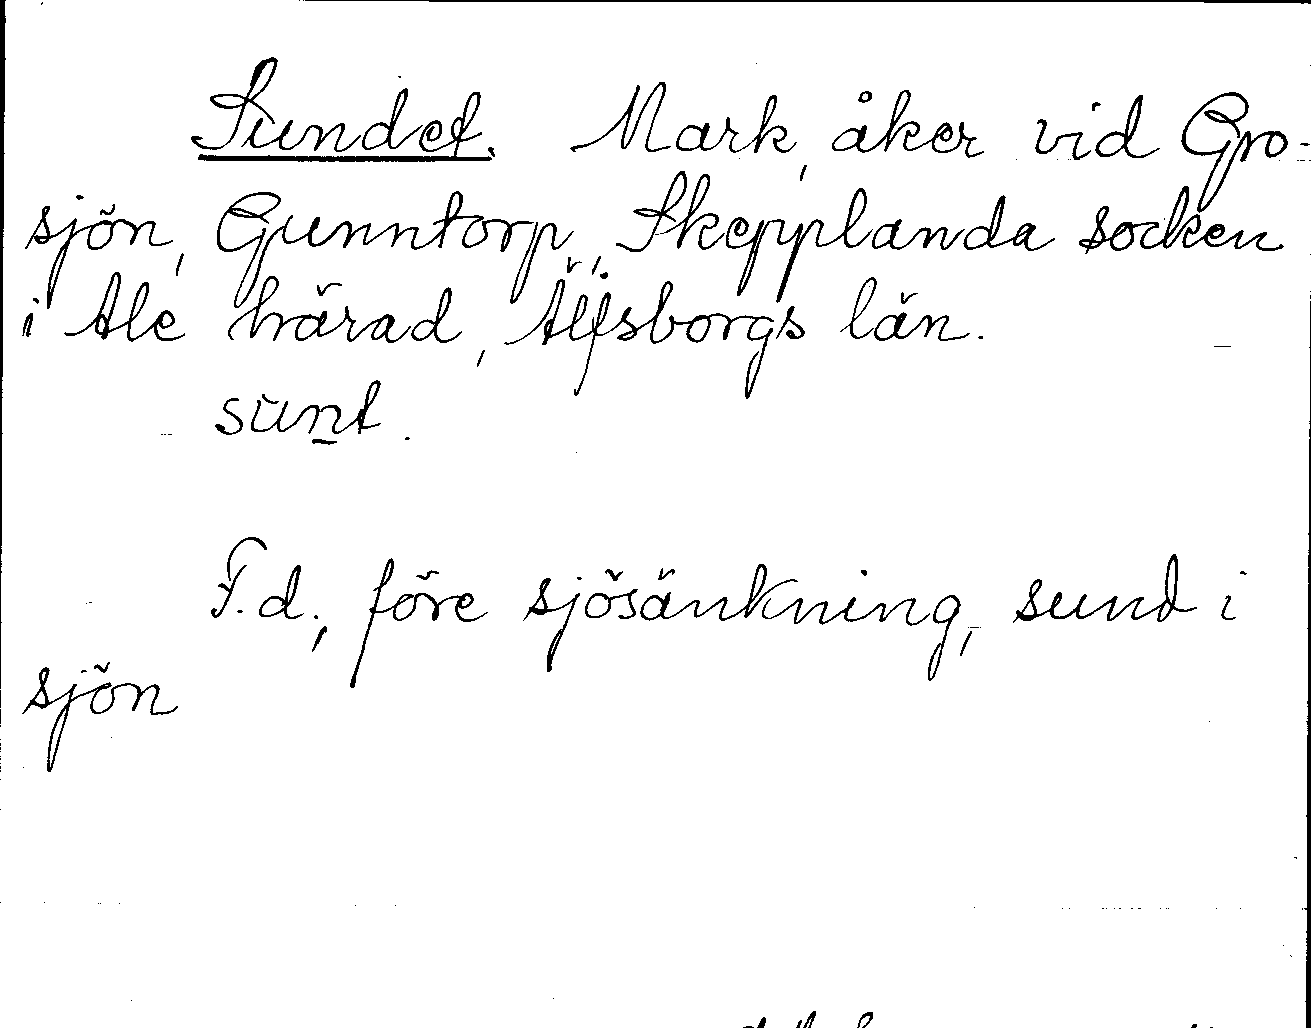 Sundet. Mark, åker vid Gro-
sjön, Gunntorp, Skepplanda socken
i Ale härad, Älfsborgs län.
sunt.
F.d., före sjösänkning, sund i
sjön